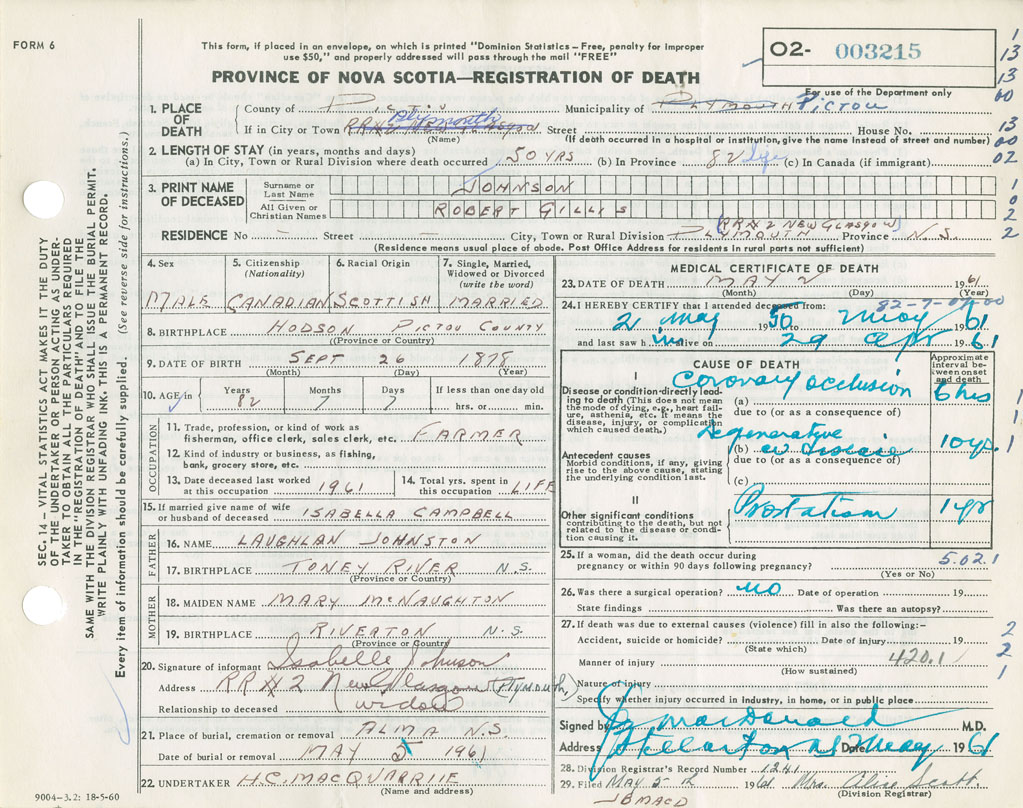 FORM 6
This form, if placed in an envelope, on which is printed "Dominion Statistics – Free, penalty for improper
use $50," and properly addressed will pass through the mail "FREE"
PROVINCE OF NOVA SCOTIA—REGISTRATION OF DEATH
O2- 003215
For use of the Department only
1. PLACE OF DEATH
County of PICTOU Municipality of PLYMOUTH PICTOU
If in City or Town RR#2 NEW GLASGOW Plymouth Street House No.
(Name) (If death occurred in a hospital or institution, give the name instead of street and number)
2. LENGTH OF STAY (in years, months and days)
(a) In City, Town or Rural Division where death occurred 50 YRS (b) In Province 82 life (c) In Canada (if immigrant)
3. PRINT NAME OF DECEASED
Surname or Last Name JOHNSON
All Given or Christian Names ROBERT GILLIS
RESIDENCE No — Street — City, Town or Rural Division (RR#2 NEW GLASGOW) PLYMOUTH Province N.S.
(Residence means usual place of abode. Post Office Address for residents in rural parts not sufficient)
4. Sex MALE
5. Citizenship (Nationality) CANADIAN
6. Racial Origin SCOTTISH
7. Single, Married, Widowed or Divorced (write the word) MARRIED
8. BIRTHPLACE HODSON PICTOU COUNTY
(Province or Country)
9. DATE OF BIRTH SEPT 26 1878
(Month) (Day) (Year)
10. AGE in Years 82 Months 7 Days 7 If less than one day old hrs. or min.
OCCUPATION
11. Trade, profession, or kind of work as
fisherman, office clerk, sales clerk, etc. FARMER
12. Kind of industry or business, as fishing,
bank, grocery store, etc.
13. Date deceased last worked
at this occupation 1961
14. Total yrs. spent in
this occupation LIFE
15. If married give name of wife
or husband of deceased ISABELLA CAMPBELL
FATHER
16. NAME LAUGHLAN JOHNSTON
17. BIRTHPLACE TONEY RIVER N.S.
(Province or Country)
MOTHER
18. MAIDEN NAME MARY McNAUGHTON
19. BIRTHPLACE RIVERTON N.S.
(Province or Country)
20. Signature of informant Isabelle Johnson
Address RR#2 New Glasgow (Plymouth)
Relationship to deceased (widow)
21. Place of burial, cremation or removal ALMA N.S.
Date of burial or removal MAY 5 1961
22. UNDERTAKER H.C. MACQUARRIIE
(Name and address)
9004-3.2: 18-5-60
MEDICAL CERTIFICATE OF DEATH
23. DATE OF DEATH MAY 2 1961
(Month) (Day) (Year)
24. I HEREBY CERTIFY that I attended deceased from:
82-7-07-00
2 May 1950 May 1961
and last saw him alive on 29 Apr 1961
CAUSE OF DEATH
Approximate interval between onset and death
I
Disease or condition directly leading to death (This does not mean the mode of dying, e.g., heart failure, asthenia, etc. It means the disease, injury, or complication which caused death.)
(a) Coronary occlusion 6 hrs
due to (or as a consequence of)
Antecedent causes
Morbid conditions, if any, giving rise to the above cause, stating the underlying condition last.
(b) Degenerative cv Disease 10 yr.
due to (or as a consequence of)
(c)
II
Other significant conditions
contributing to the death, but not related to the disease or condition causing it.
Prostatism 1 yr
25. If a woman, did the death occur during
pregnancy or within 90 days following pregnancy? 5.02.1
(Yes or No)
26. Was there a surgical operation? no Date of operation 19
State findings Was there an autopsy?
27. If death was due to external causes (violence) fill in also the following:-
Accident, suicide or homicide? Date of injury 19
(State which) 420.1
Manner of injury
(How sustained)
Nature of injury
Specify whether injury occurred in industry, in home, or in public place
Signed by MacDonald M.D.
Address Stellarton NS Date May 1961
28. Division Registrar's Record Number 1241
29. Filed May 5-12 1961 Mrs. Alice Scott
(Division Registrar)
JBMACD
SEC. 14 – VITAL STATISTICS ACT MAKES IT THE DUTY
OF THE UNDERTAKER OR PERSON ACTING AS UNDER-
TAKER TO OBTAIN ALL THE PARTICULARS REQUIRED
IN THE "REGISTRATION OF DEATH" AND TO FILE THE
SAME WITH THE DIVISION REGISTRAR WHO SHALL ISSUE THE BURIAL PERMIT.
WRITE PLAINLY WITH UNFADING INK. THIS IS A PERMANENT RECORD.
Every item of information should be carefully supplied. (See reverse side for instructions.)
1
13
13
60
13
00
02
1
0
2
2
1
1
1
2
2
1